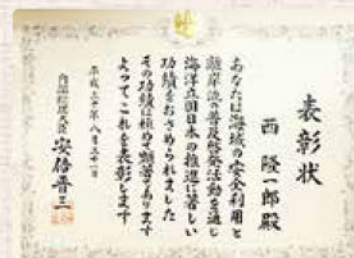 表彰状
西 隆一郎殿
あなたは海域の安全利用と
離岸流の普及啓発活動を通し
海洋立国日本の推進に著しい
功績をおさめられました
その功績は極めて顕著であります
よってこれを表彰します
平成三十年八月三十一日
内閣総理大臣 安倍晋三